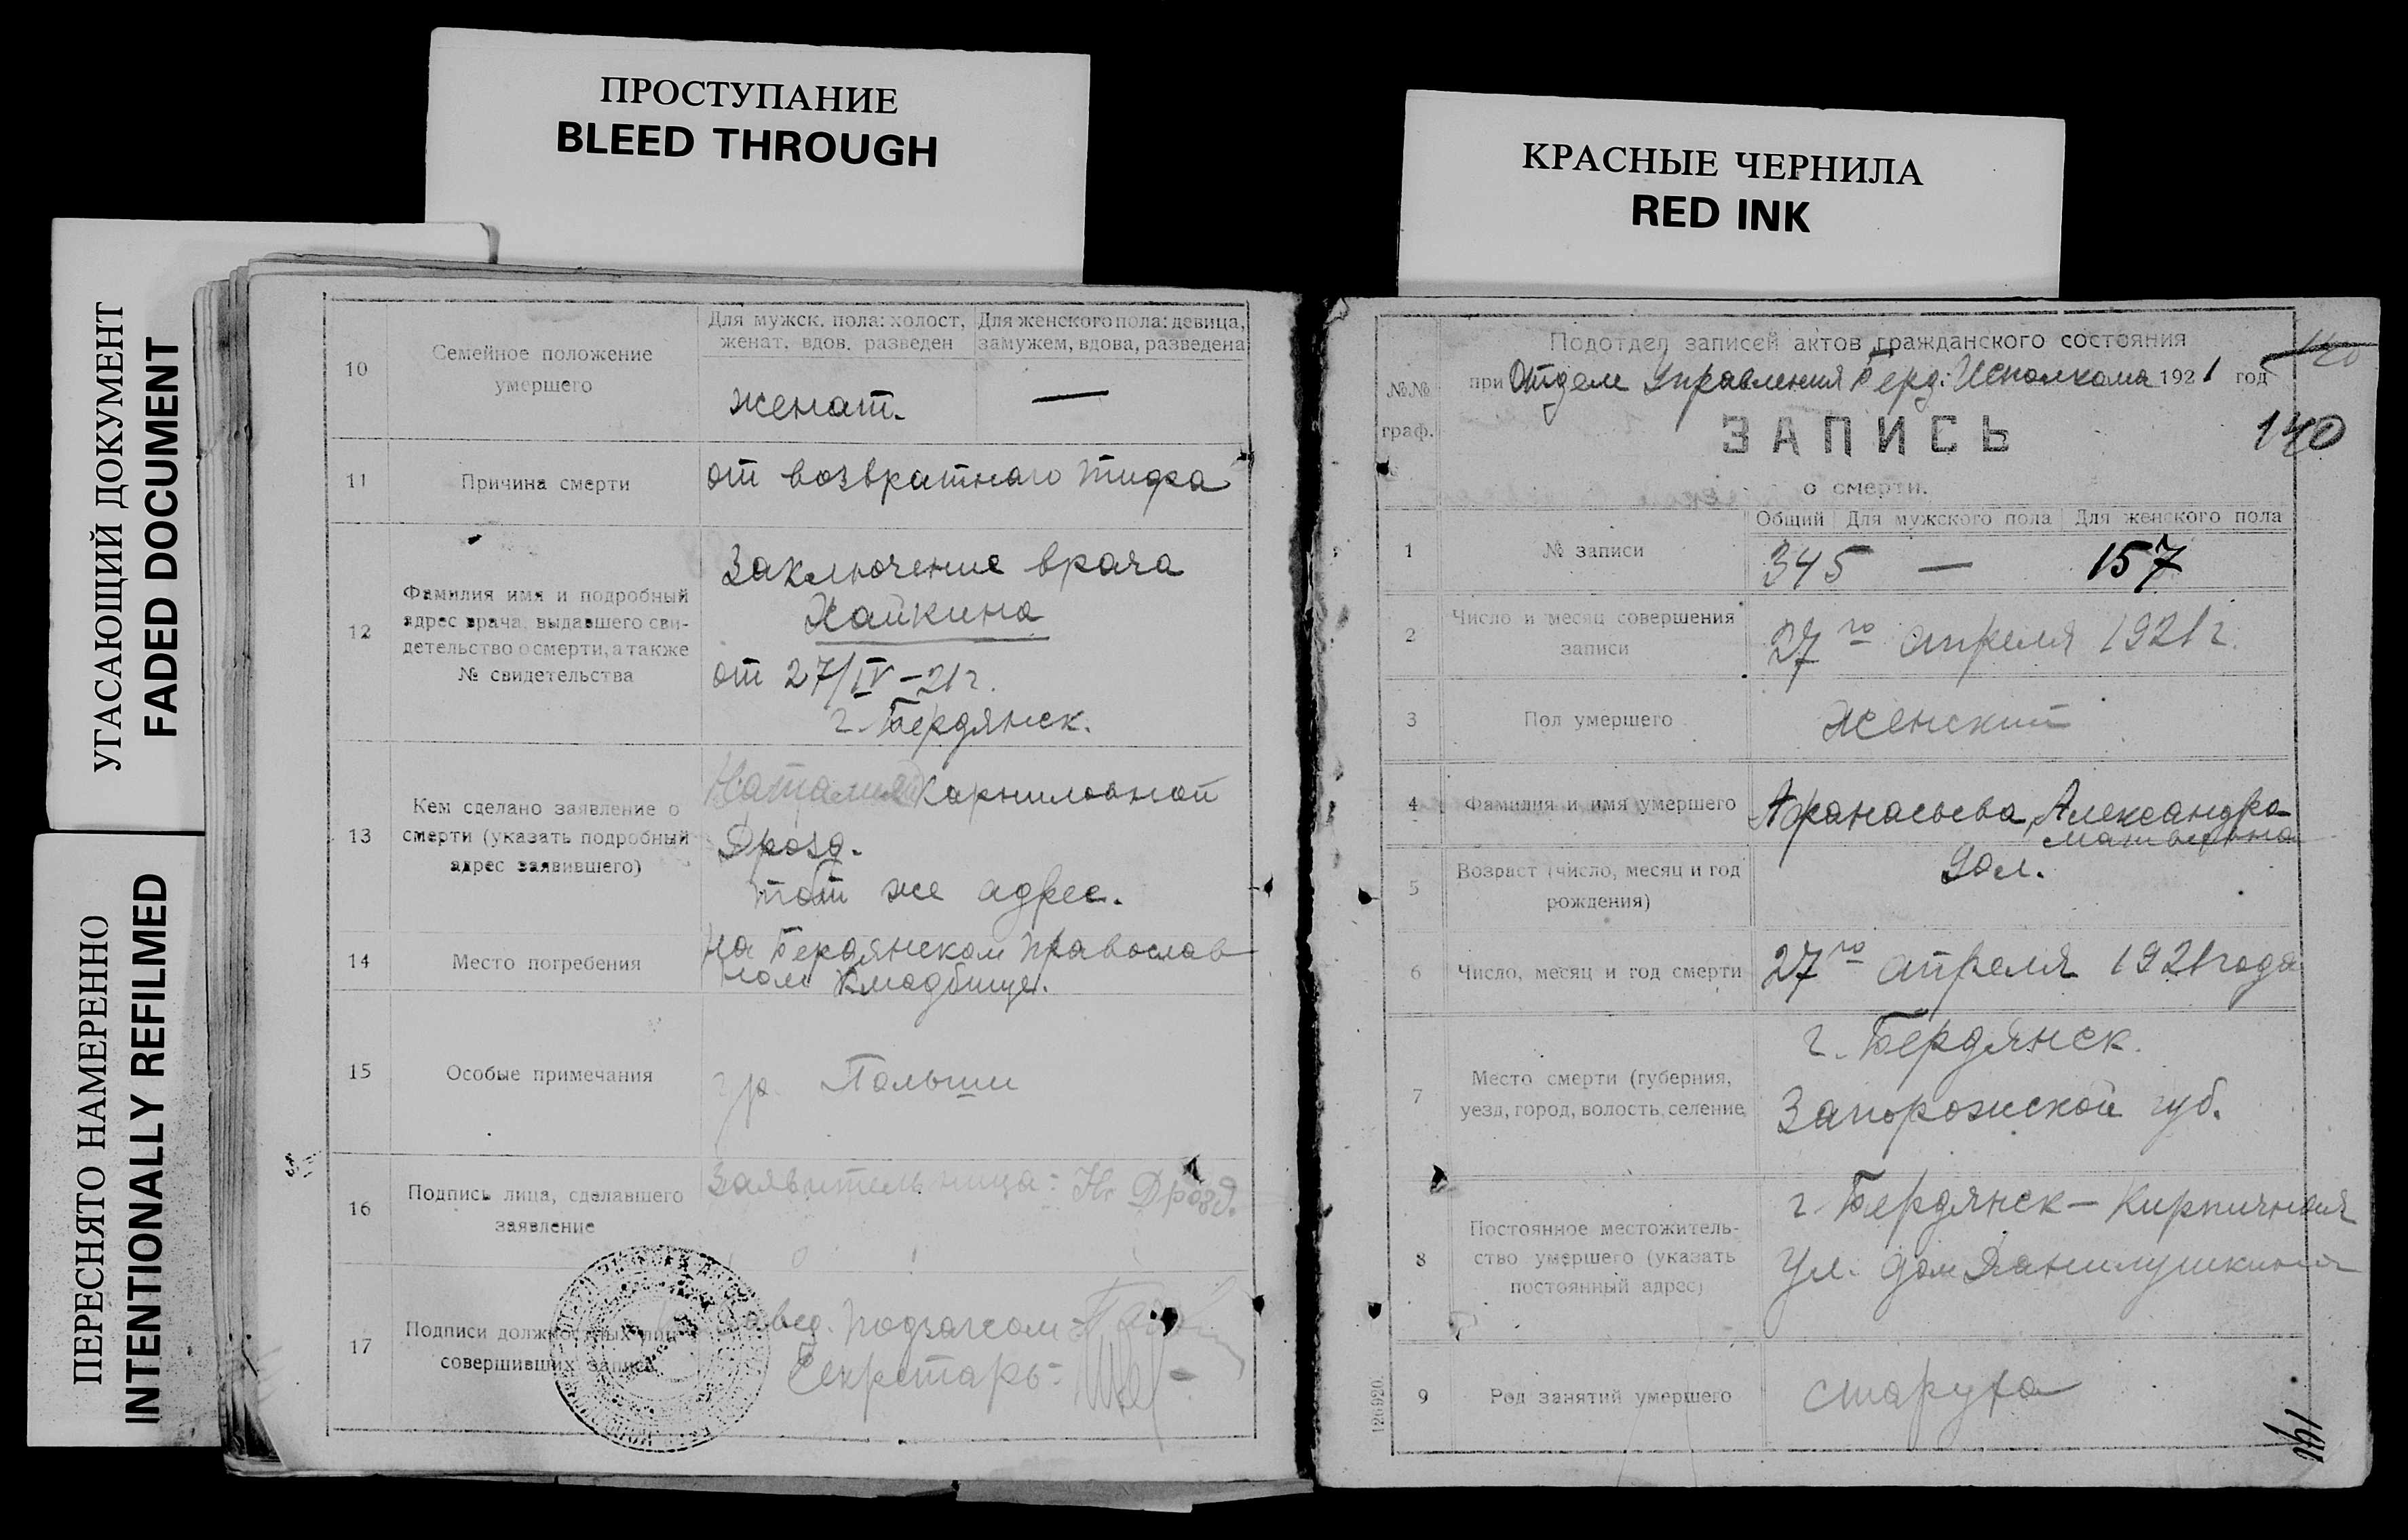 ПРОСТУПАНИЕ
BLEED THROUGH
КРАСНЫЕ ЧЕРНИЛА
RED INK
УГАСАЮЩИЙ ДОКУМЕНТ
FADED DOCUMENT
ПЕРЕСНЯТО НАМЕРЕННО
INTENTIONALLY REFILMED
10
Семейное положение
умершего
Для мужск. пола: холост,
женат, вдов. разведен
Для женского пола: девица,
замужем, вдова, разведена
женат.
—
11
Причина смерти
от возвратного тифа
12
Фамилия имя и подробный
адрес врача, выдавшего сви-
детельство о смерти, а также
№ свидетельства
Заключение врача
Хайкина
от 27/IV-21г.
г. Бердянск.
13
Кем сделано заявление о
смерти (указать подробный
адрес заявившего)
Наталией Корниловной
Дрозд.
тот же адрес.
14
Место погребения
на Бердянском православ
ном кладбище.
15
Особые примечания
гр. Польши
16
Подпись лица, сделавшего
заявление
Заявительница: Н. Дрозд.
17
Подписи должностных лиц
совершивших запись
Завед. Подзагсом
Секретарь:
№№
граф.
Подотдел записей актов гражданского состояния
при Отделе Управления Берд. Исполкома 1921 год
140
ЗАПИСЬ
140
о смерти.
1
№ записи
Общий
Для мужского пола
Для женского пола
345 — 157
2
Число и месяц совершения
записи
27го апреля 1921г.
3
Пол умершего
Женский
4
Фамилия и имя умершего
Афанасьева, Александра
Матвеевна
5
Возраст (число, месяц и год
рождения)
90л.
6
Число, месяц и год смерти
27го апреля 1921 года
7
Место смерти (губерния,
уезд, город, волость, селение
г. Бердянск.
Запорожской губ.
8
Постоянное местожитель-
ство умершего (указать
постоянный адрес)
г. Бердянск – Кирпичная
ул. дом Данилушкина
9
Род занятий умершего
старуха
126920.